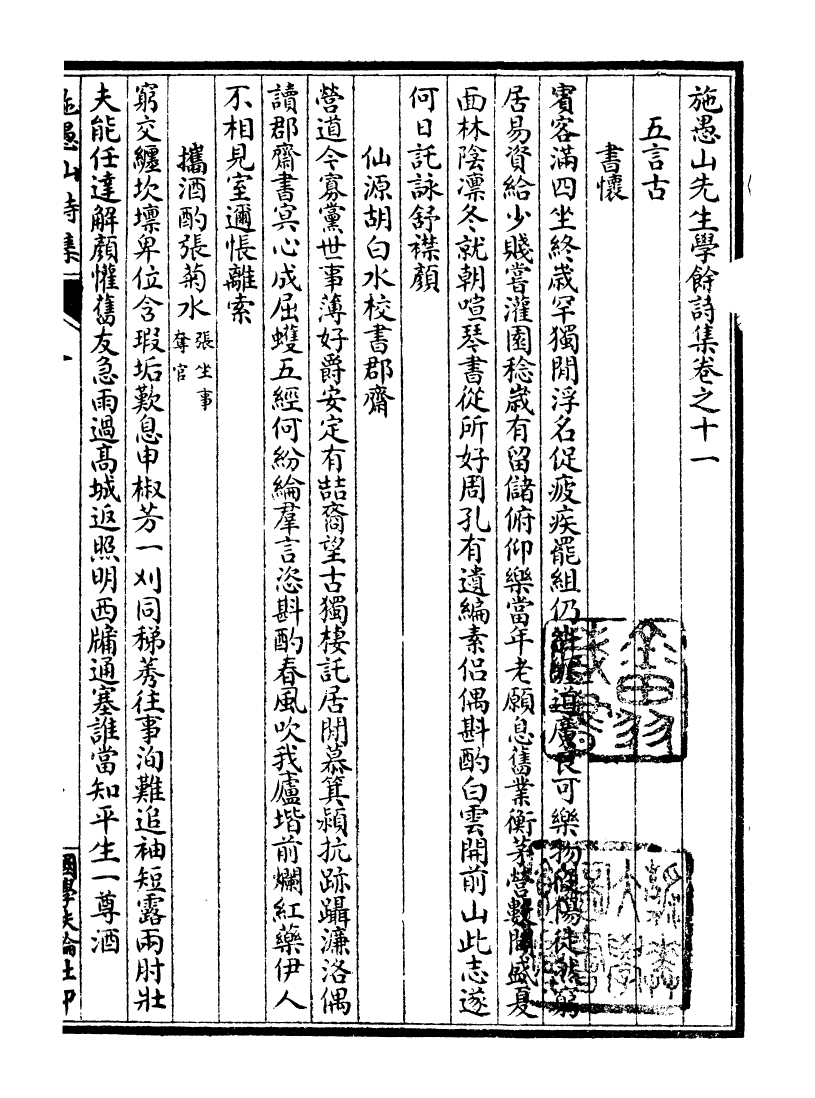 施愚山先生學餘詩集卷之十一
五言古
書懷
賓客滿四坐終歲罕獨閒浮名促疲疾罷組仍迫廣良可樂物徒窮
居易資給少賤嘗灌園稔歲有留儲俯仰樂當年老願息舊業衡茅營數間盛夏
面林陰凛冬就朝喧琴書從所好周孔有遺編素侶偶斟酌白雲開前山此志遂
何日託詠舒襟顏
仙源胡白水校書郡齋
營道今寡黨世事薄好爵安定有喆裔望古獨棲託居閒慕箕潁抗跡躡濂洛偶
讀郡齋書寅心成屈蠖五經何紛綸羣言恣斟酌春風吹我廬堦前爛紅藥伊人
不相見室邇悵離索
攜酒酌張菊水張坐事奪官
窮交纏坎壈卑位含瑕垢歎息申椒芳一刈同稊莠往事洵難追袖短露兩肘壯
夫能任達解顏懽舊友急雨過高城返照明西牗通塞誰當知平生一尊酒
施愚山詩集
一
國學扶輪社印